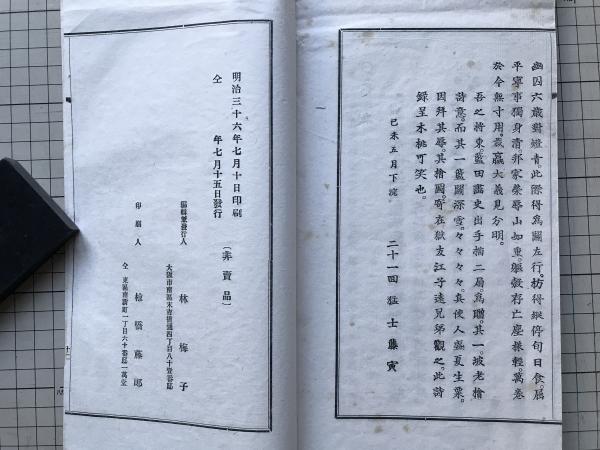 幽囚六歳對燈青此際得爲關左行。枋得縱停旬日食。屈
平寧事獨身清。邦家榮辱山如重。軀殼存亡塵樣輕。萬卷
於今無寸用。裁贏大義見分明。
吾之將東。藍田畵史出手描二扇爲贈。其一。坡老檐
詩意。而其一藍關深雪。々々々々。眞使人盛夏生粟。
因拜其辱。其檐圖寄在獄友江子遠兄弟觀之。此詩
錄呈木桃可笑也。
己未五月下浣。
二十一回猛士藤寅
明治三十六年七月十日印刷
仝 年七月十五日發行
〔非賣品〕
編輯兼發行人
大阪市南區末吉橋通四丁目八十壹番邸
林 梅子
印刷人
仝 東區南新町一丁目六十番邸
檜 藤郎
十二